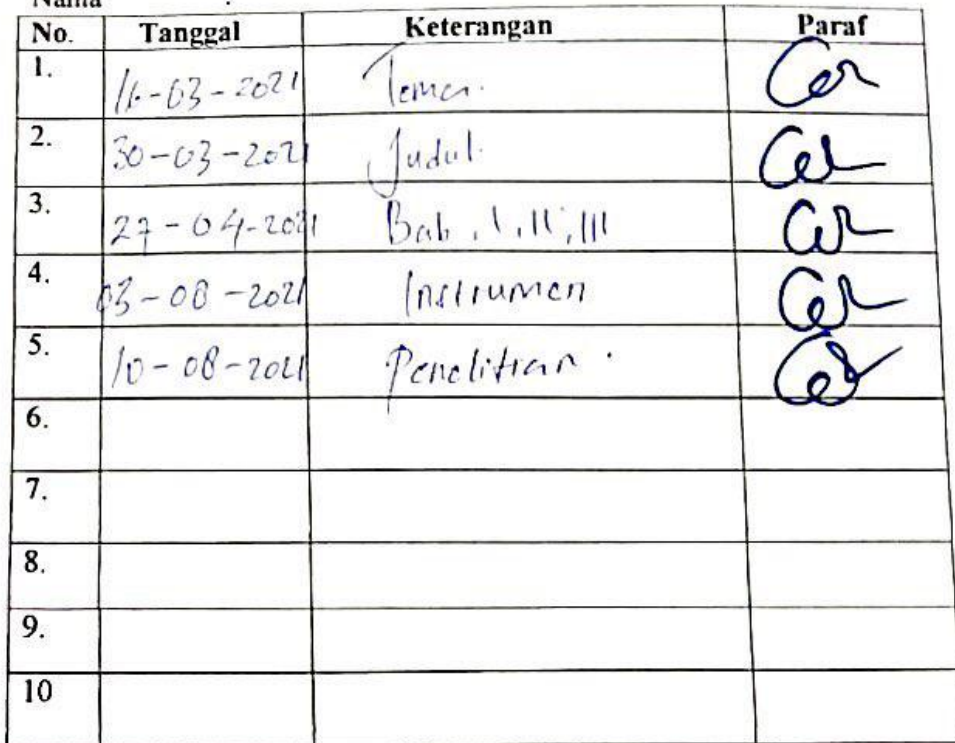 Nama :
No. Tanggal Keterangan Paraf
1. 16-03-2021 Tema.
2. 30-03-2021 Judul.
3. 27-04-2021 Bab. I, II, III
4. 03-08-2021 Instrumen
5. 10-08-2021 Penelitian.
6.
7.
8.
9.
10